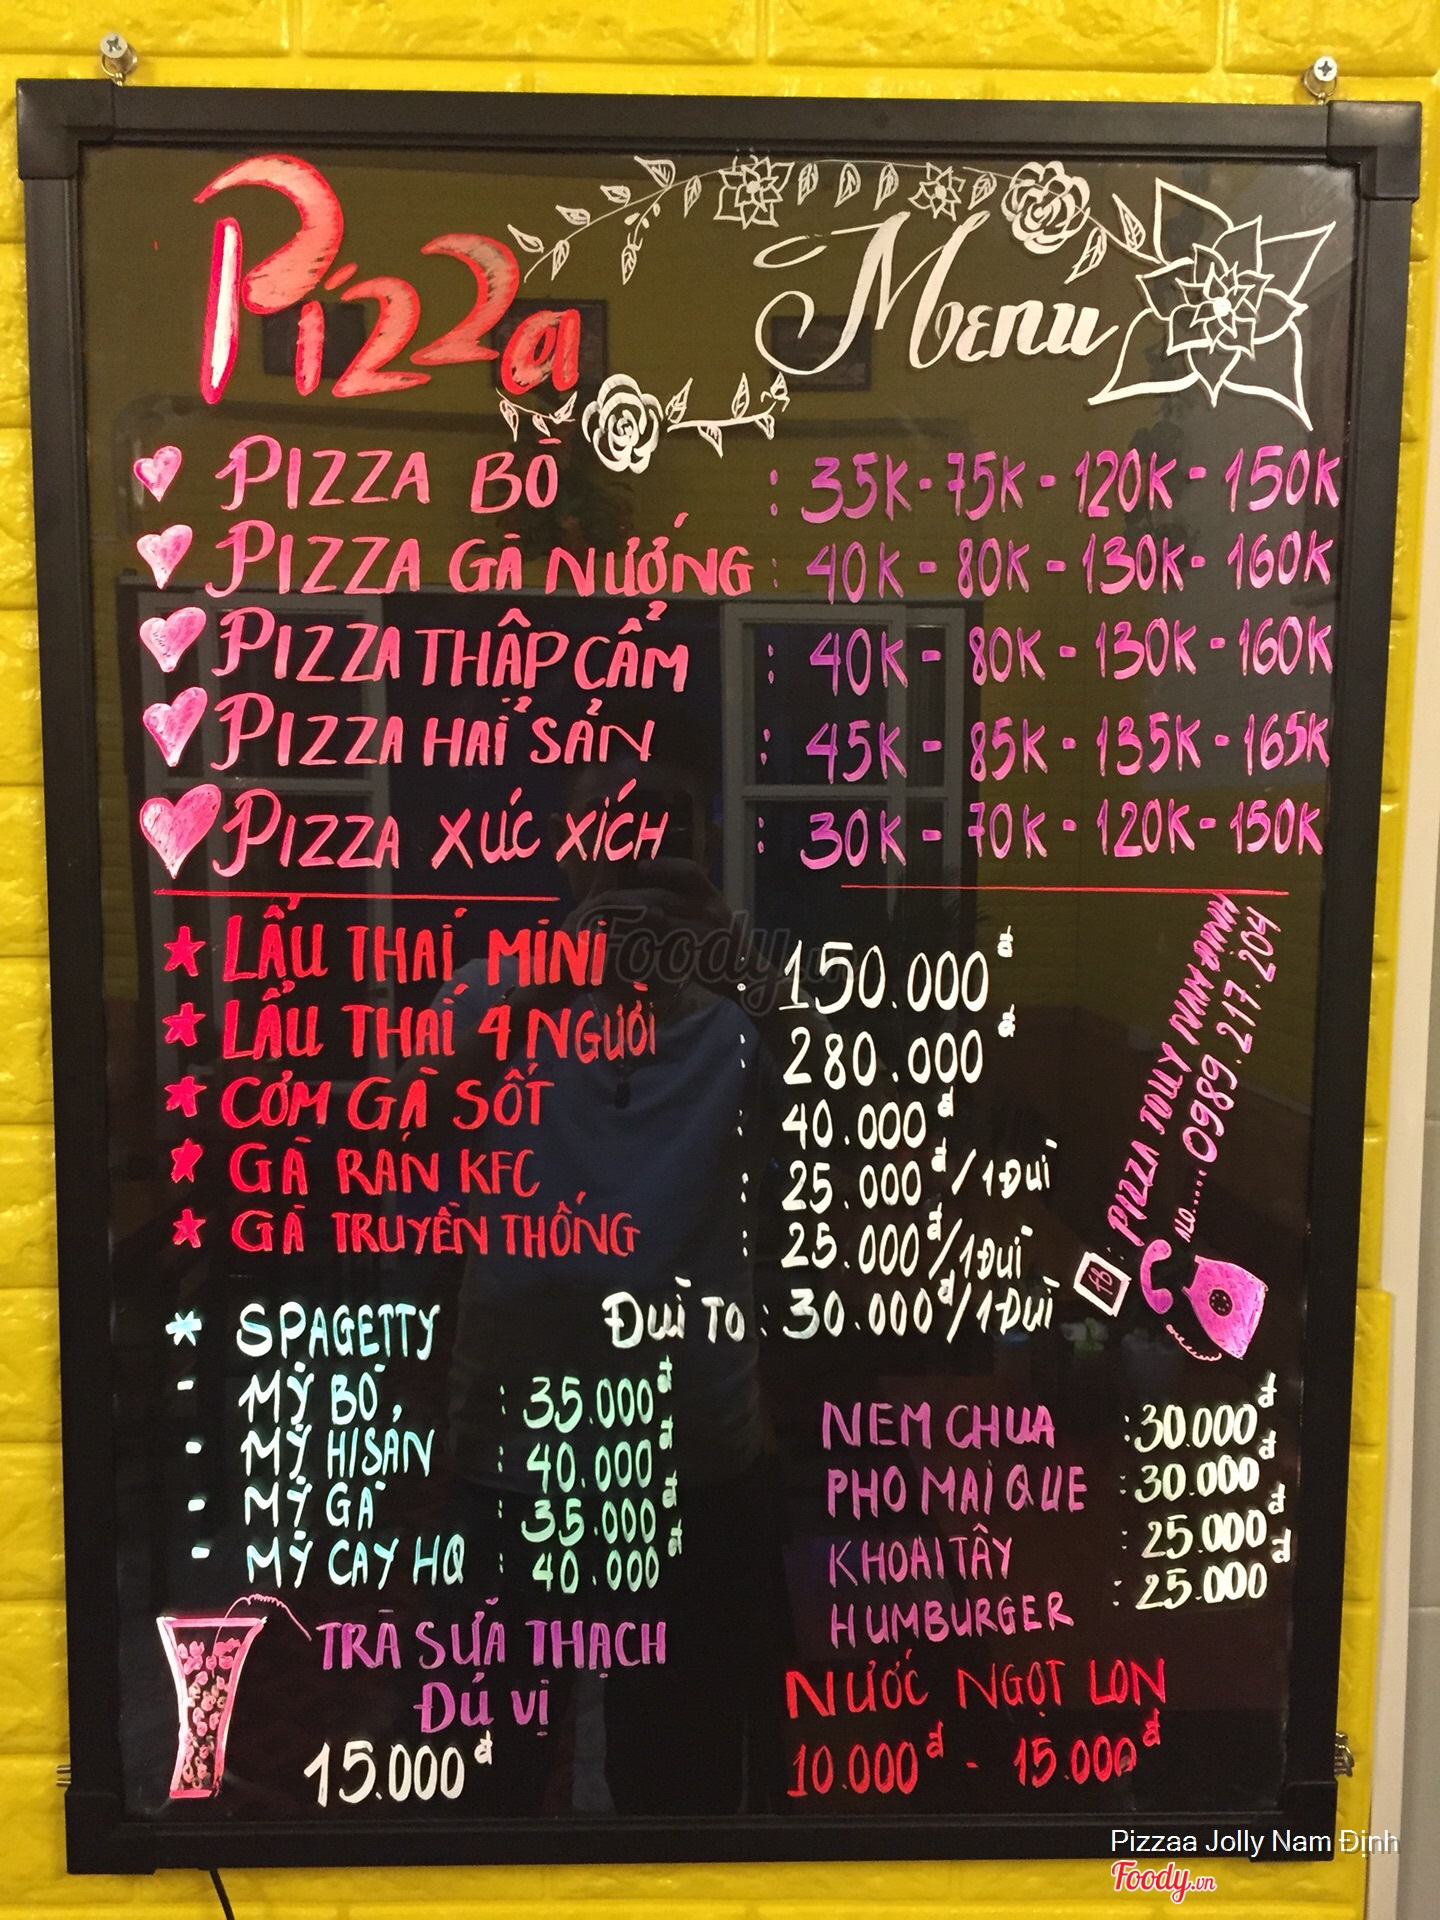 Pizza Menu
PIZZA BÒ : 35K - 75K - 120K - 150K
PIZZA GÀ NƯỚNG : 40K - 80K - 130K - 160K
PIZZA THẬP CẨM : 40K - 80K - 130K - 160K
PIZZA HẢI SẢN : 45K - 85K - 135K - 165K
PIZZA XÚC XÍCH : 30K - 70K - 120K - 150K
LẨU THÁI MINI : 150.000đ
LẨU THÁI 4 NGƯỜI : 280.000đ
CƠM GÀ SỐT : 40.000đ
GÀ RÁN KFC : 25.000đ/1 Đùi
GÀ TRUYỀN THỐNG : 25.000đ/1 Đùi
Đùi TO : 30.000đ/1 Đùi
FB : PIZZA JOLLY NAM ĐỊNH
ALO.....: 0989.217.204
SPAGETTY
- MỲ BÒ : 35.000đ
- MỲ HISẢN : 40.000đ
- MỲ GÀ : 35.000đ
- MỲ CAY HQ : 40.000đ
NEM CHUA : 30.000đ
PHO MAI QUE : 30.000đ
KHOAI TÂY : 25.000đ
HUMBURGER : 25.000đ
TRÀ SỮA THẠCH
ĐỦ VỊ
15.000đ
NƯỚC NGỌT LON
10.000đ - 15.000đ
Foody.vn
Pizzaa Jolly Nam Định
Foody.vn